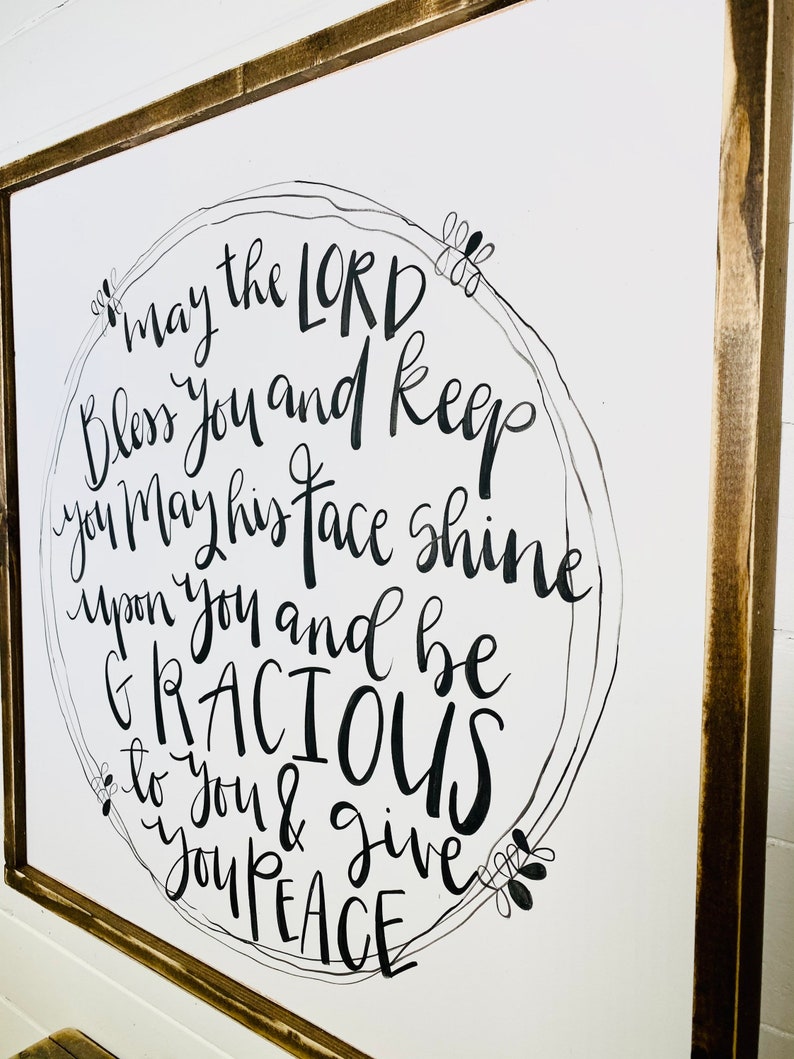 may the LORD
Bless You and keep
you May his face shine
upon You and be
GRACIOUS
to You & give
You PEACE